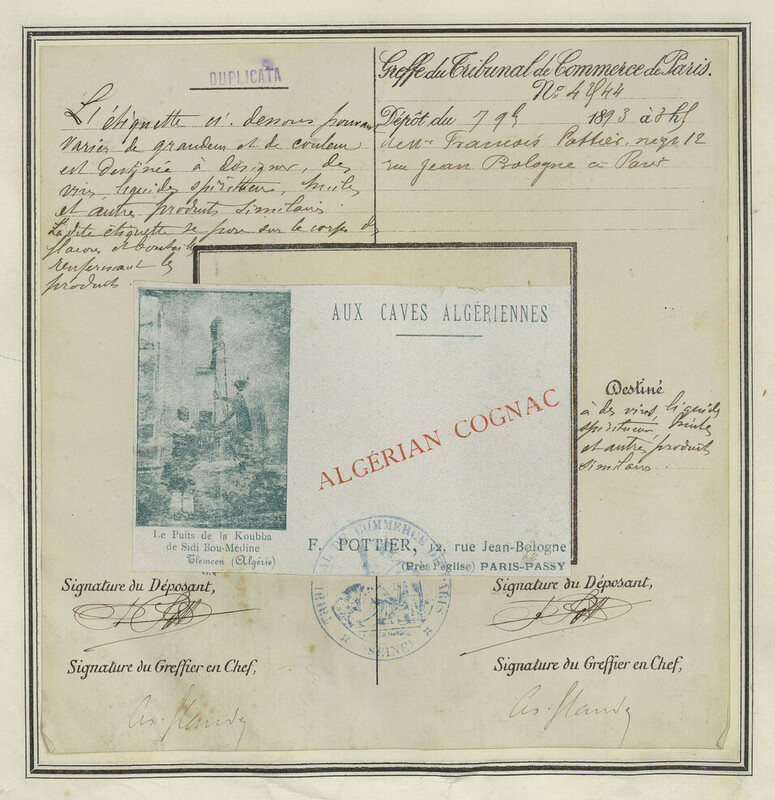 DUPLICATA
L'étiquette ci-dessous pouvant
varier de grandeur et de couleur
est destinée à désigner, des
vins, liquides spiritueux, huiles
et autres produits similaires.
La dite étiquette se pose sur le corps des
flacons et bouteilles
renfermant les
produits.
Greffe du Tribunal de Commerce de Paris.
Dépôt du 7 9b 1893 à 3 h
de Mr François Pottier, négt 12
rue Jean Bologne à Paris
AUX CAVES ALGÉRIENNES
ALGÉRIAN COGNAC
Le Puits de la Koubba
de Sidi Bou-Medine
Tlemcen (Algérie)
F. POTTIER, 12, rue Jean-Bologne
(Près l'église) PARIS-PASSY
Destiné
à des vins, liquides
spiritueux, huiles
et autres produits
similaires.
TRIBUNAL DE COMMERCE DE PARIS
(SEINE)
Signature du Déposant,
Signature du Greffier en Chef,
Signature du Déposant,
Signature du Greffier en Chef,